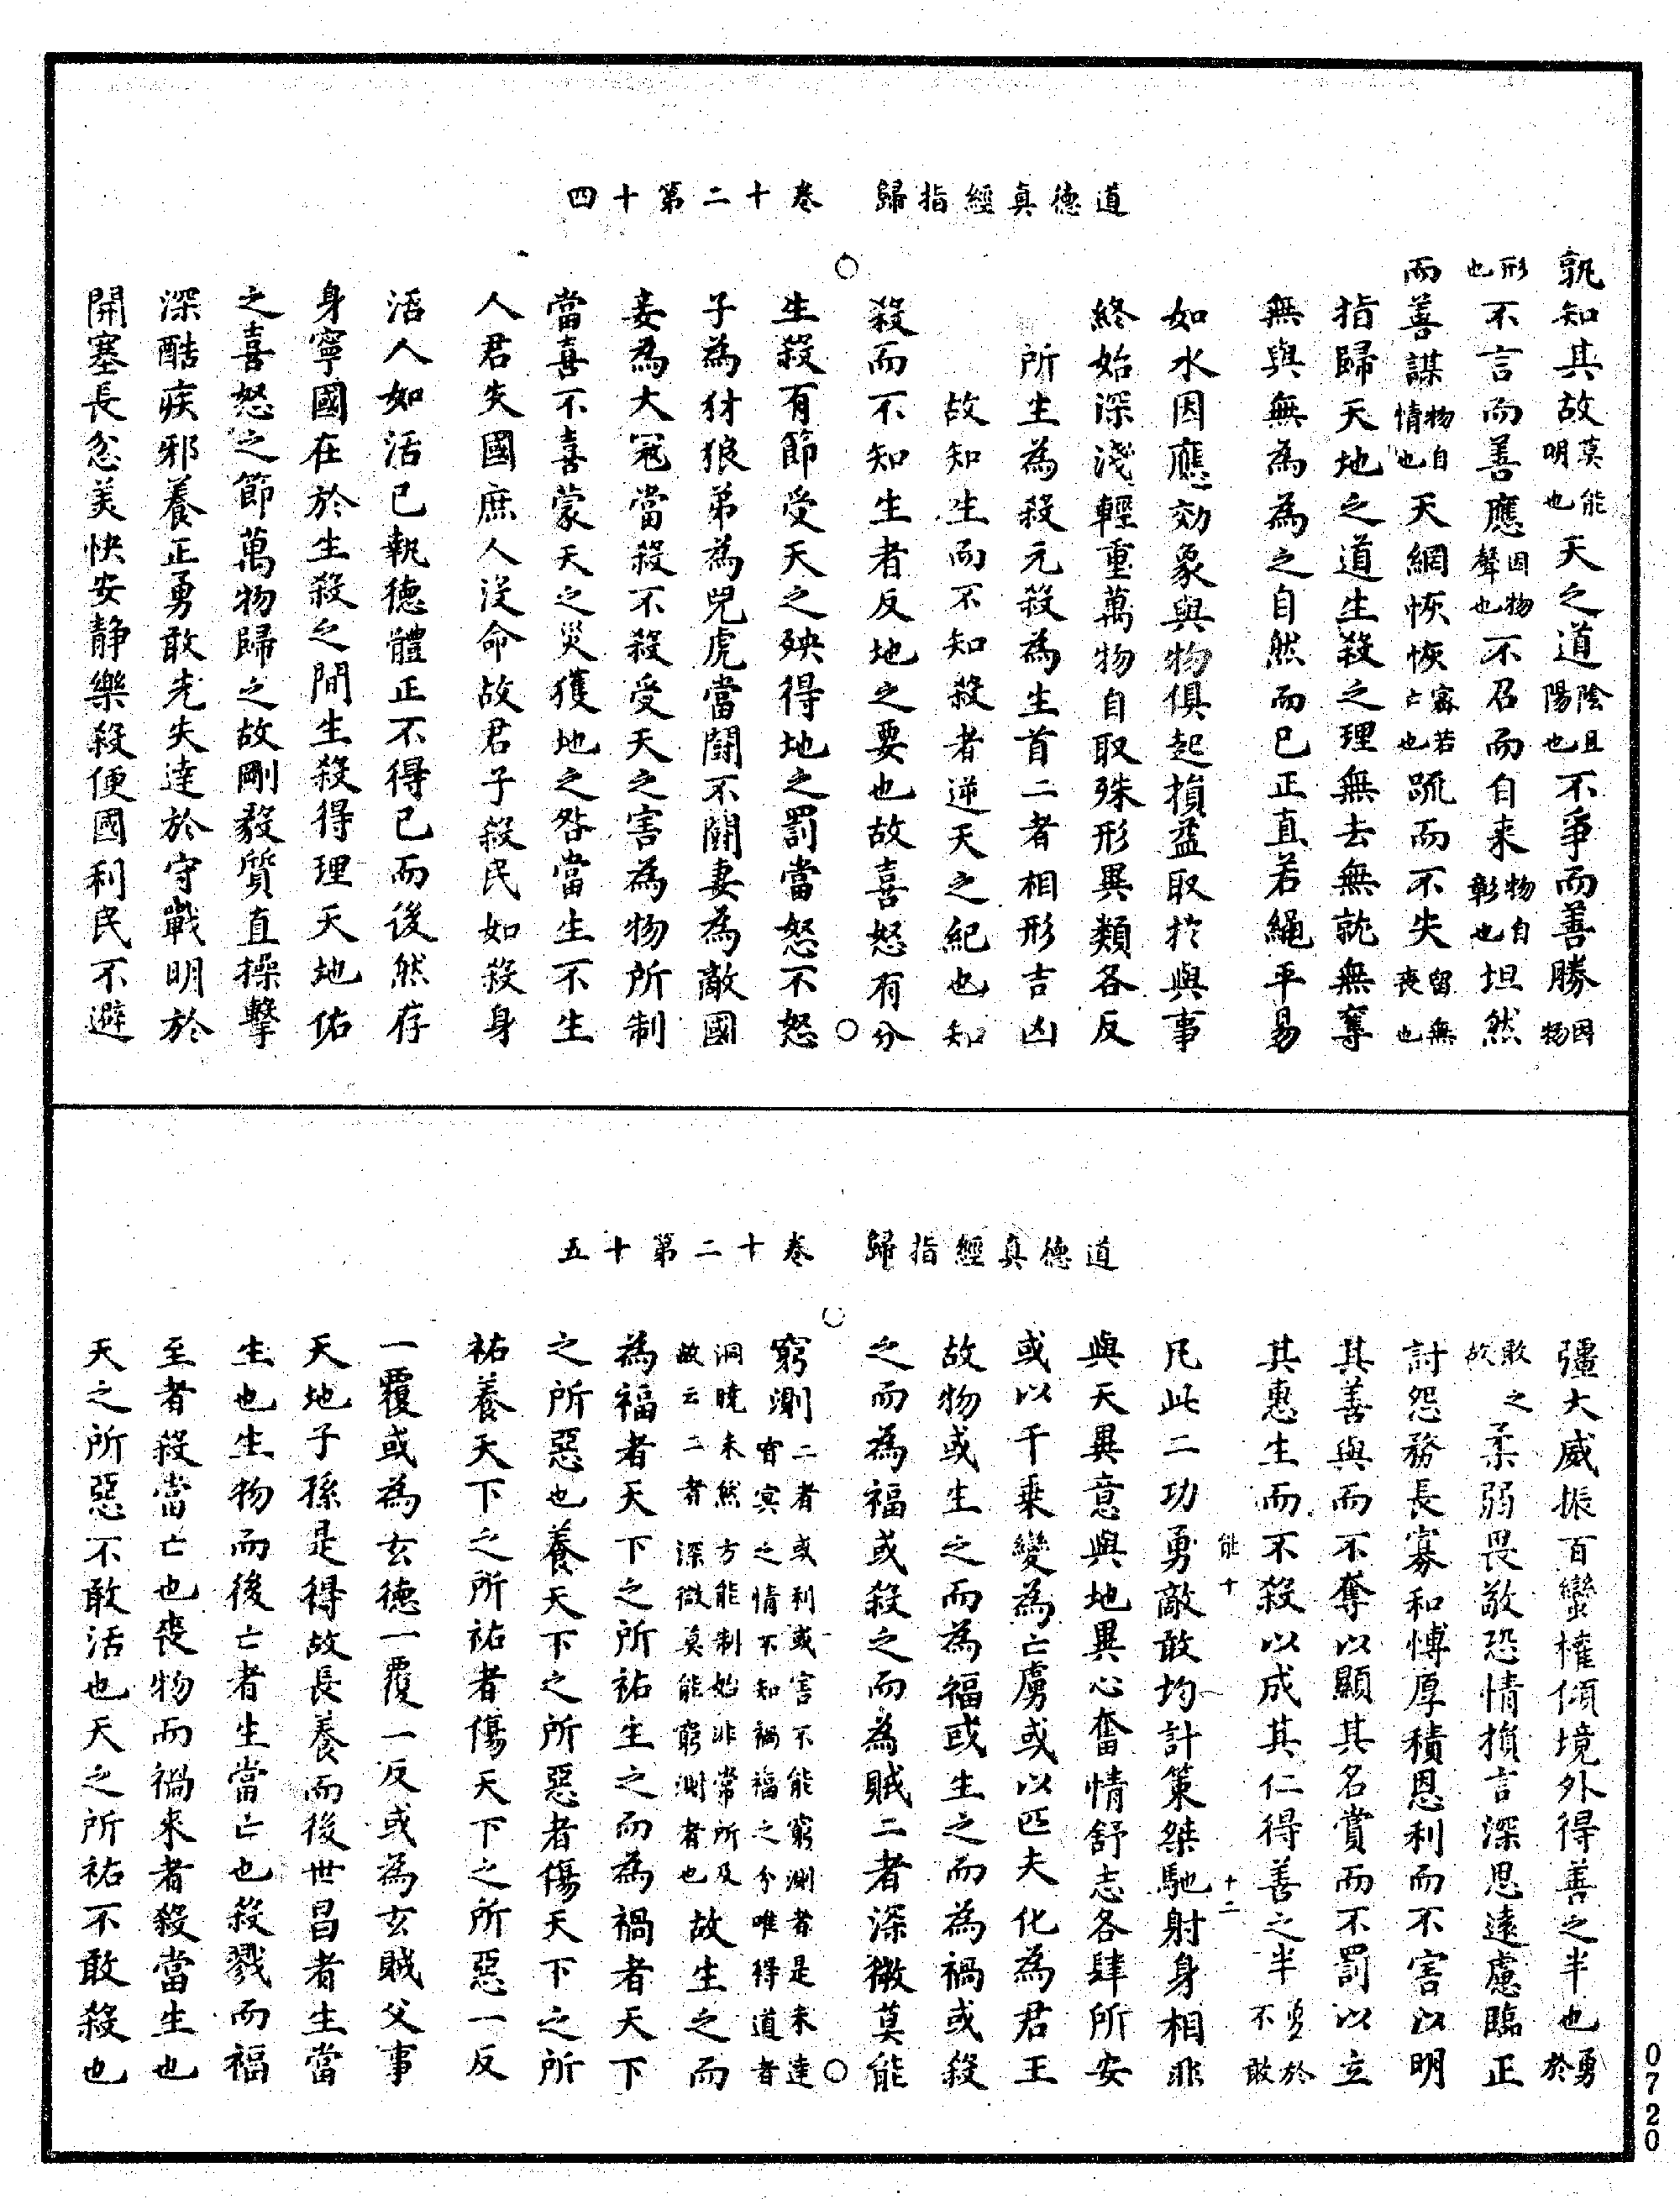 道德真經指歸　卷十二第十四
孰知其故莫能明也天之道陰且陽也不爭而善勝因物
形也不言而善應因物聲也不召而自来物自彰也坦然
而善謀物自情也天網恢恢審若亡也踈而不失留無喪無也
指歸天地之道生殺之理無去無就無奪
無與無為為之自然而已正直若繩平易
如水因應効象與物俱起損益取扵與事
終始深淺輕重萬物自取殊形異類各反
所生為殺元殺為生首二者相形吉凶
故知生而不知殺者逆天之紀也知
殺而不知生者反地之要也故喜怒有分
生殺有節受天之殃得地之罰當怒不怒
子為豺狼弟為兕虎當鬪不鬪妻為敵國
妾為大冦當殺不殺受天之害為物所制
當喜不喜蒙天之災獲地之咎當生不生
人君失國庶人没命故君子殺民如殺身
活人如活己執德體正不得已而後然存
身寧國在於生殺之間生殺得理天地佑
之喜怒之節萬物歸之故剛毅質直操擊
深酷疾邪養正勇敢先失達於守戰明於
開塞長忿美快安静樂殺便國利民不避
道德真經指歸　卷十二第十五
彊大威振百蠻權傾境外得善之半也勇於
敢之故柔弱畏敬恐情損言深思遠慮臨正
討怨務長寡和博厚積恩利而不害以明
其善與而不奪以顯其名賞而不罰以立
其惠生而不殺以成其仁得善之半勇於不敢
能十　十二
凡此二功勇敵敢均計策桀馳射身相非
與天異意與地異心奮情舒志各肆所安
或以千乗變為亡虜或以匹夫化為君王
故物或生之而為福或生之而為禍或殺
之而為福或殺之而為賊二者深微莫能
窮測二者或利或害不能窮測者是未達窅冥之情不知禍福之分唯得道者
洞曉未然方能制始非常所及故云二者深微莫能窮測者也故生之而
為福者天下之所祐生之而為禍者天下
之所惡也養天下之所惡者傷天下之所
祐養天下之所祐者傷天下之所惡一反
一覆或為玄德一覆一反或為玄賊父事
天地子孫是得故長養而後世昌者生當
生也生物而後亡者生當亡也殺戮而福
至者殺當亡也喪物而禍来者殺當生也
天之所惡不敢活也天之所祐不敢殺也
0720